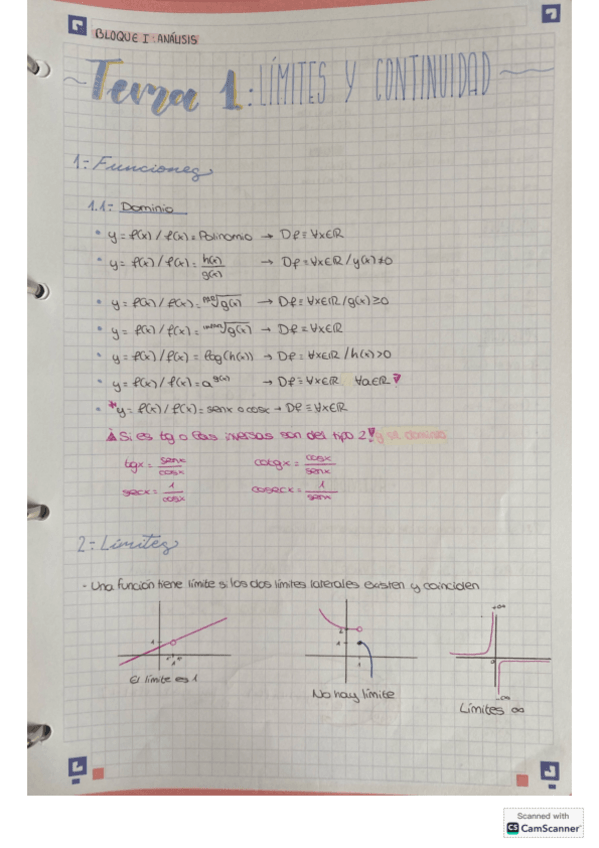 BLOQUE I: ANÁLISIS
Tema 1: LÍMITES Y CONTINUIDAD
1= Funciones
1.1= Dominio
• y = f(x) / f(x) = Polinomio → Df = ∀x∈ℝ
• y = f(x) / f(x) = h(x)/g(x) → Df = ∀x∈ℝ / g(x) ≠ 0
• y = f(x) / f(x) = ᵖᵃʳ√g(x) → Df = ∀x∈ℝ / g(x) ≥ 0
• y = f(x) / f(x) = ⁱᵐᵖᵃʳ√g(x) → Df = ∀x∈ℝ
• y = f(x) / f(x) = log(h(x)) → Df = ∀x∈ℝ / h(x) > 0
• y = f(x) / f(x) = a^g(x) → Df = ∀x∈ℝ ∀a∈ℝ
• *y = f(x) / f(x) = senx o cosx → Df = ∀x∈ℝ
Si es tg o las inversas son del tipo 2! y se dominio
tgx = senx/cosx cotgx = cosx/senx
secx = 1/cosx cosecx = 1/senx
2= Límites
- Una función tiene límite si los dos límites laterales existen y coinciden
+∞
1
2
1
0
1
-∞
El límite es 1
No hay límite
Límites ∞
Scanned with
CS CamScanner